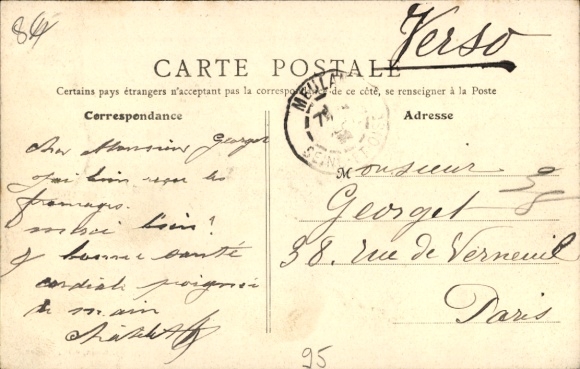 84
Verso
CARTE POSTALE
Certains pays étrangers n'acceptant pas la correspondance de ce côté, se renseigner à la Poste
Correspondance
Adresse
MEULAN
SEINE-ET-OISE
Cher Monsieur Georget
j'ai bien reçu les
fromages.
merci bien!
& bonne santé
cordiale poignée
de main
Monsieur
Georget
38. rue de Verneuil
Paris
95